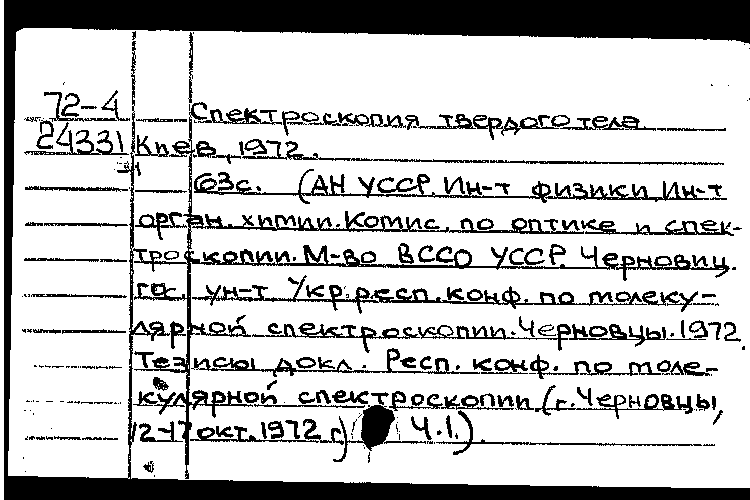 72-4 Спектроскопия твердого тела
24331 Киев, 1972.
63с. (АН УССР. Ин-т физики, Ин-т
орган. химии. Комис. по оптике и спек-
троскопии. М-во ВССО УССР. Черновиц.
гос. ун-т Укр. респ. конф. по молеку-
лярной спектроскопии. Черновцы. 1972.
Тезисы докл. Респ. конф. по моле-
кулярной спектроскопии (г. Черновцы,
12-17 окт. 1972 г.) Ч.1.).